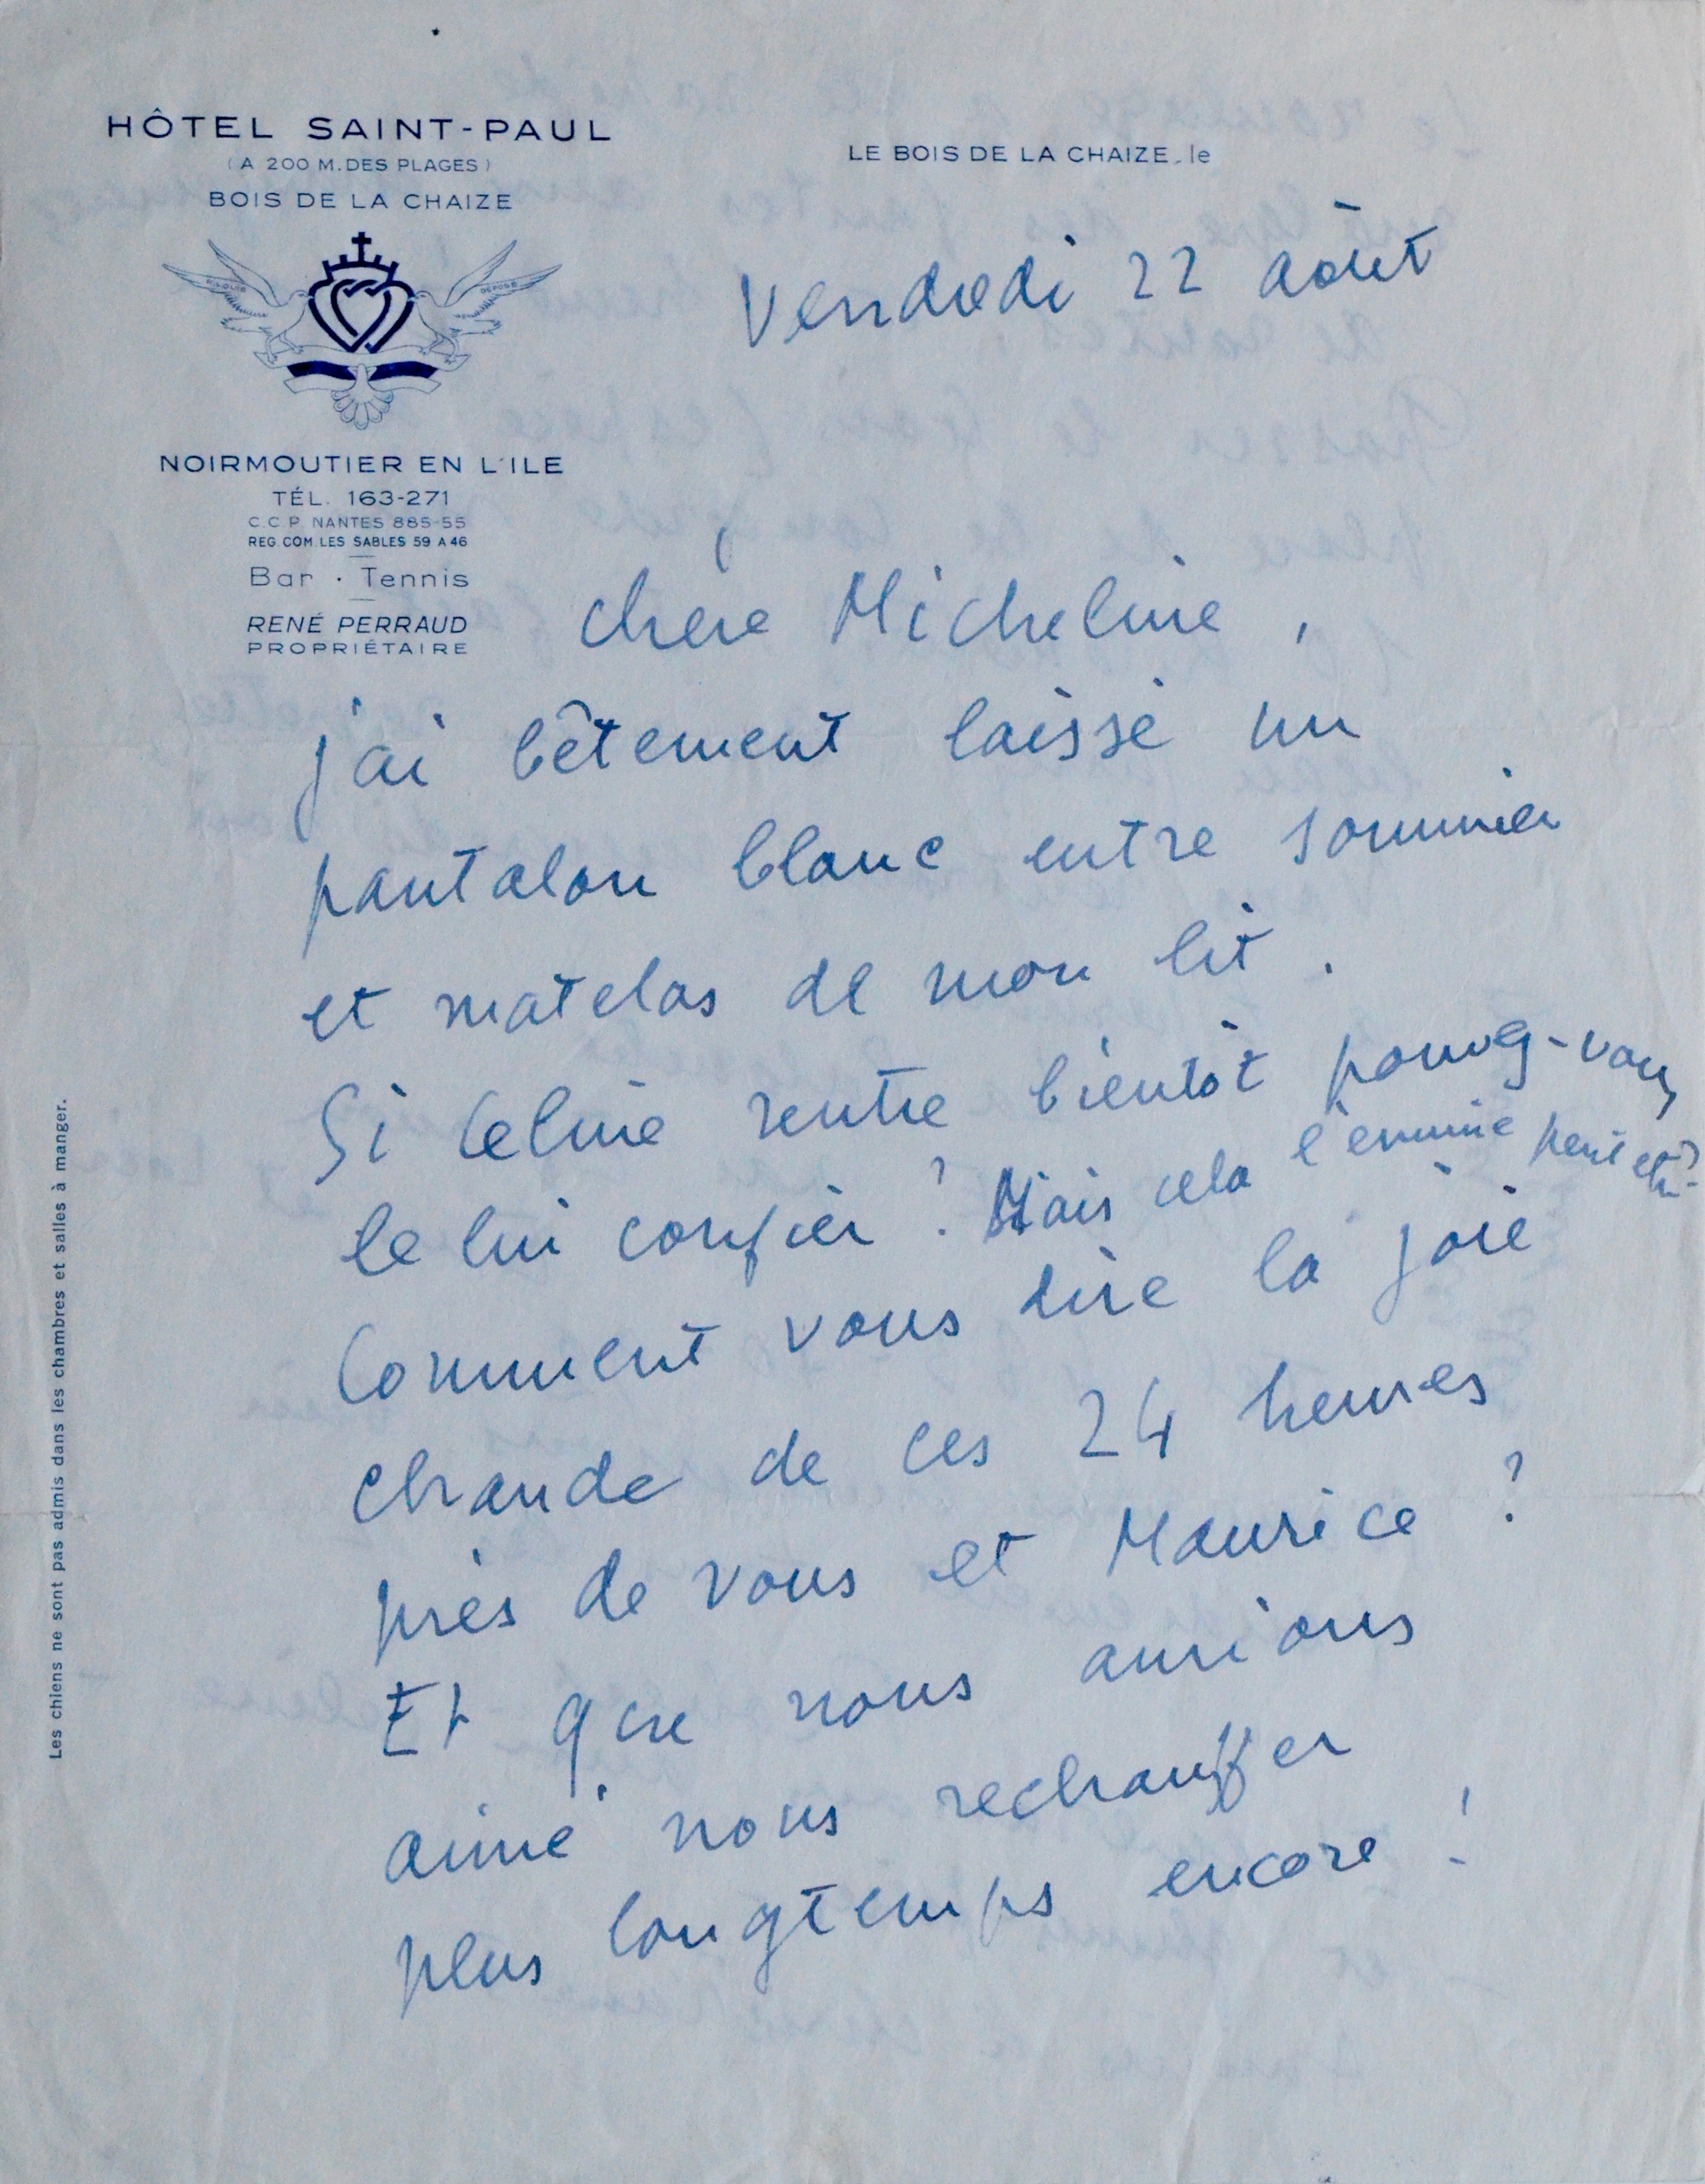 HÔTEL SAINT-PAUL
(A 200 M. DES PLAGES)
BOIS DE LA CHAIZE
LE BOIS DE LA CHAIZE, le
Vendredi 22 août
DÉPOSÉ
NOIRMOUTIER EN L'ILE
TÉL. 163-271
C.C.P. NANTES 885-55
REG. COM. LES SABLES 59 A 46
Bar · Tennis
RENÉ PERRAUD
PROPRIÉTAIRE
Chère Micheline,
j'ai bêtement laissé un
pantalon blanc entre sommier
et matelas de mon lit.
Si Celine rentre bientôt pouvez-vous
le lui confier ? Mais cela l'ennuie peut etre ?
Comment vous dire la joie
chaude de ces 24 heures
près de vous et Maurice ?
Et que nous aurions
aimé nous rechauffer
plus longtemps encore !
Les chiens ne sont pas admis dans les chambres et salles à manger.